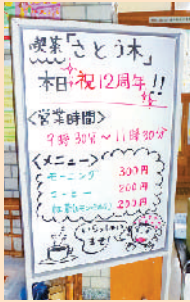 喫茶「さとう木」
本日祝12周年!!
<営業時間>
9時30分〜11時30分
<メニュー>
モーニング 300円
コーヒー 200円
200円
いらっしゃい
ませ!